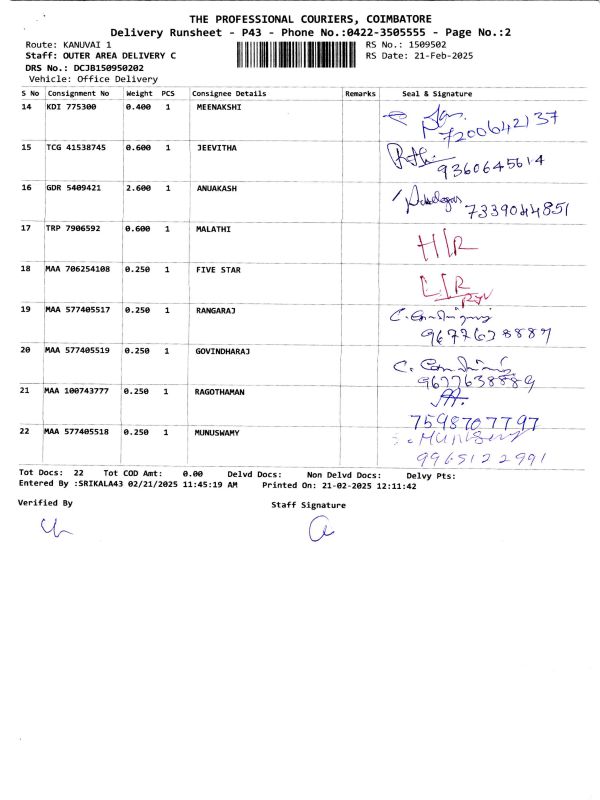 THE PROFESSIONAL COURIERS, COIMBATORE
Delivery Runsheet - P43 - Phone No.:0422-3505555 - Page No.:2
Route: KANUVAI 1 RS No.: 1509502
Staff: OUTER AREA DELIVERY C RS Date: 21-Feb-2025
DRS No.: DCJB150950202
Vehicle: Office Delivery
S No Consignment No Weight PCS Consignee Details Remarks Seal & Signature
14 KDI 775300 0.400 1 MEENAKSHI
7200642137
15 TCG 41538745 0.600 1 JEEVITHA
9360645614
16 GDR 5409421 2.600 1 ANUAKASH
7339044851
17 TRP 7906592 0.600 1 MALATHI
H/R
18 MAA 706254108 0.250 1 FIVE STAR
19 MAA 577405517 0.250 1 RANGARAJ
20 MAA 577405519 0.250 1 GOVINDHARAJ
21 MAA 100743777 0.250 1 RAGOTHAMAN
7598707797
22 MAA 577405518 0.250 1 MUNUSWAMY
9965122991
Tot Docs: 22 Tot COD Amt: 0.00 Delvd Docs: Non Delvd Docs: Delvy Pts:
Entered By :SRIKALA43 02/21/2025 11:45:19 AM Printed On: 21-02-2025 12:11:42
Verified By Staff Signature